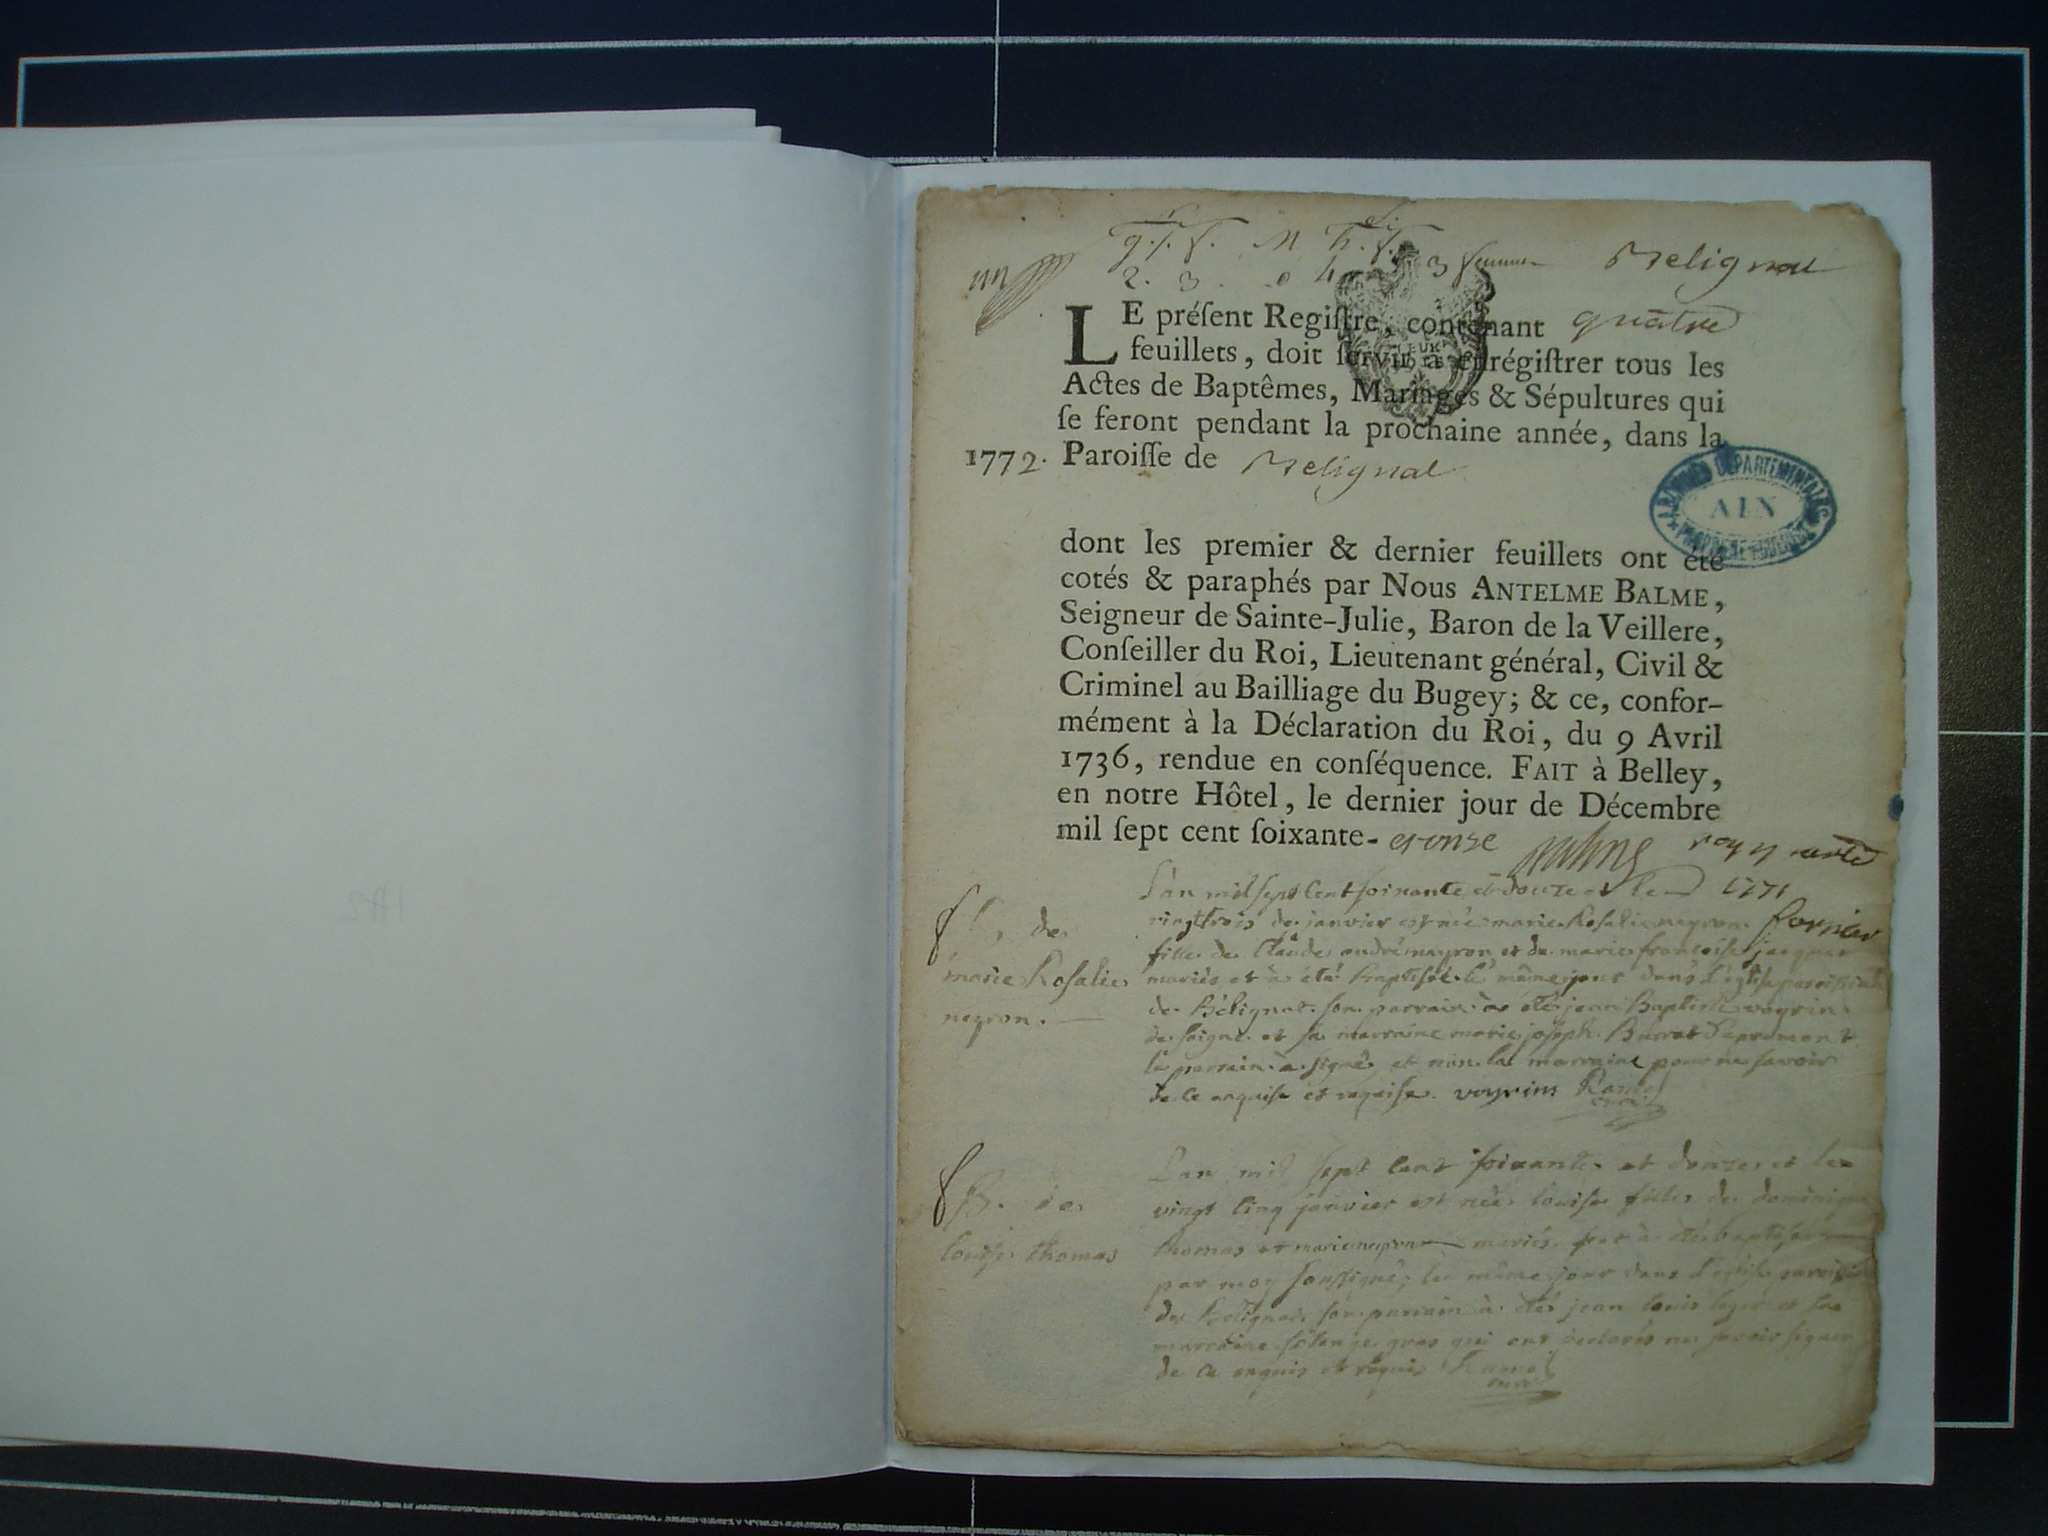 un
g. s. f. M h. f.
2. 3. 0 4 3 femmes Belignat
LE préſent Regiſtre, contenant quatre
feuillets, doit ſervir à enrégiſtrer tous les
Actes de Baptêmes, Mariages & Sépultures qui
ſe feront pendant la prochaine année, dans la
1772. Paroiſſe de Belignat
ARCHIVES DÉPARTEMENTALES
AIN
dont les premier & dernier feuillets ont été
cotés & paraphés par Nous ANTELME BALME,
Seigneur de Sainte-Julie, Baron de la Veillere,
Conſeiller du Roi, Lieutenant général, Civil &
Criminel au Bailliage du Bugey; & ce, confor-
mément à la Déclaration du Roi, du 9 Avril
1736, rendue en conſéquence. FAIT à Belley,
en notre Hôtel, le dernier jour de Décembre
mil ſept cent ſoixante- et onze Balme
1771
B. de
marie Rosalie
neyron.
L'an mil sept cent soixante et douze et le
vingt trois de janvier est née marie Rosalie neyron
fille de Claude andré neyron et de marie françoise jacquet
mariés et a été baptisée le même jour dans l'eglise paroissiale
de Bélignat son parrain a été jean Baptiste voyrin
de et sa marraine marie joseph
le parrain a signé et non la marraine pour ne savoir
de ce enquise et requise. voyrin Ramel
curé
B. de
louise thomas
L'an mil sept cent soixante et douze et le
vingt cinq janvier est née louise fille de dominique
thomas et marie neyron mariés et a été baptisée
par moy soussigné le même jour dans l'eglise paroissiale
de Belignat son parrain a été jean louis et sa
marraine gras qui ont declarés ne savoir signer
de ce enquis et requis Ramel
curé